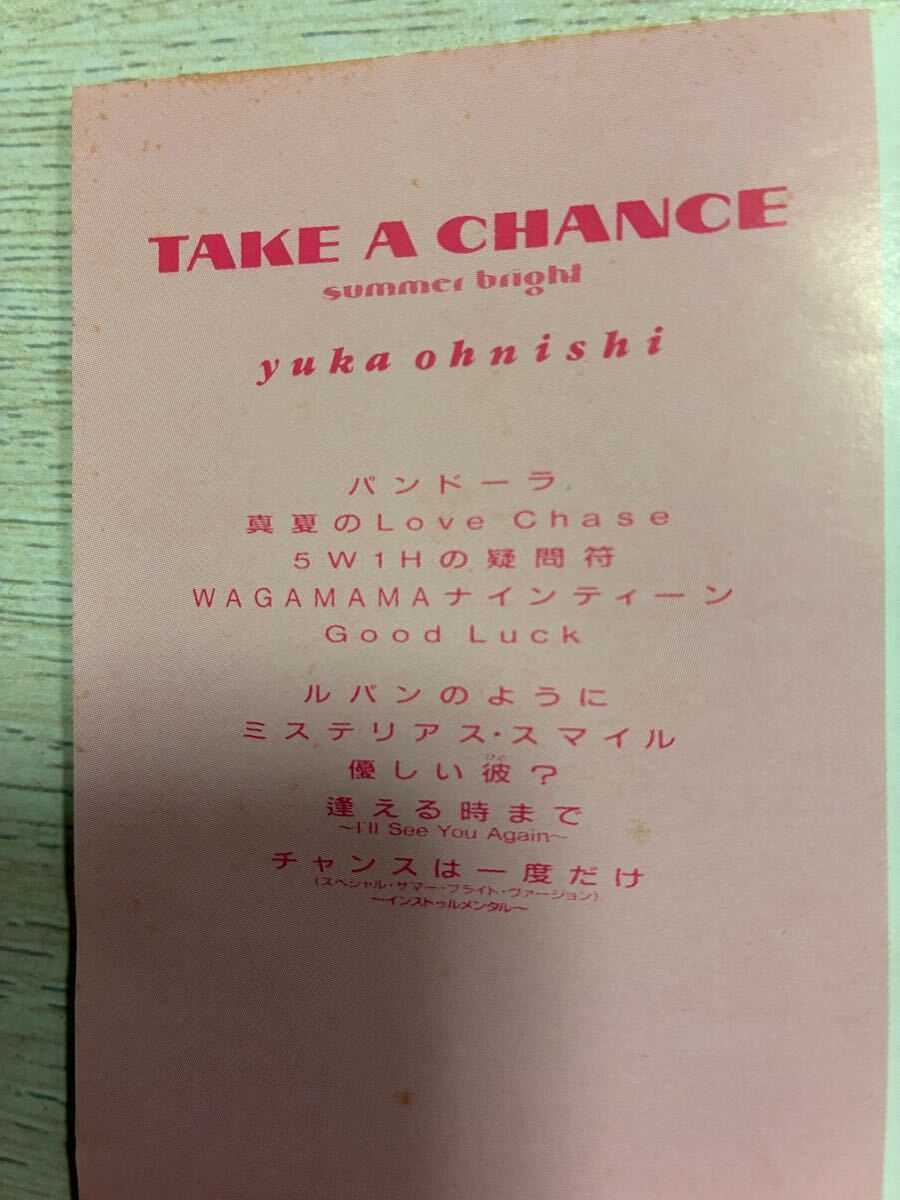 TAKE A CHANCE
summer bright
yuka ohnishi
パンドーラ
真夏のLove Chase
5W1Hの疑問符
WAGAMAMAナインティーン
Good Luck
ルパンのように
ミステリアス・スマイル
優しい彼？
逢える時まで
〜I'll See You Again〜
チャンスは一度だけ
(スペシャル・サマー・ブライト・ヴァージョン)
〜インストゥルメンタル〜